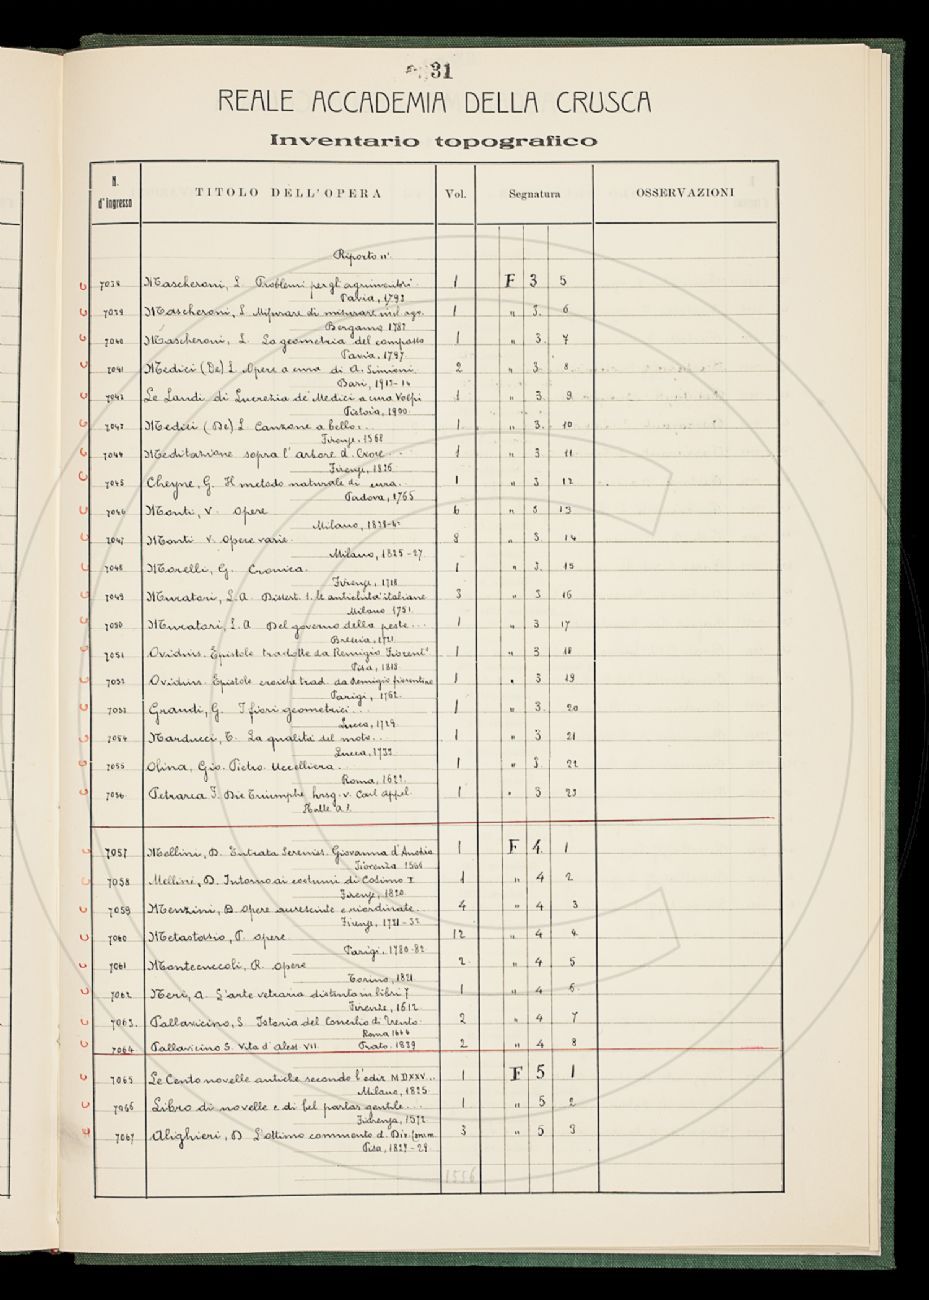 31
REALE ACCADEMIA DELLA CRUSCA
Inventario topografico
N. d'Ingresso TITOLO DELL'OPERA Vol. Segnatura OSSERVAZIONI
Riporto n°
7038 Mascheroni, L. Problemi per gli agrimensori 1 F 3 5
Pavia, 1793
7039 Mascheroni, L. 1 " 3. 6
Bergamo 1787
7040 Mascheroni, L. La geometria del compasso 1 " 3. 7
Pavia, 1797.
7041 Medici (De) L. Opere a cura di A. Simioni. 2 " 3 8
Bari, 1913-14
7042 Le Laudi di Lucrezia de' Medici a cura Volpi 1 " 3. 9
Pistoia, 1900.
7043 Medici (De) L. Canzone a ballo... 1 " 3. 10
Firenze, 1568
7044 Meditazione sopra l'arbore d. Croce... 1 " 3 11
Firenze, 1836
7045 Cheyne, G. Il metodo naturale di cura.. 1 " 3 12
Padova, 1765
7046 Monti, V. Opere 6 " 3 13
Milano,
7047 Monti V. Opere varie. 8 " 3. 14
Milano, 1825-27.
7048 Morelli, G. Cronica. 1 " 3. 15
Firenze, 1718
7049 Muratori, L. A. Dissert. s. le antichità italiane 3 " 3 16
Milano 1751.
7050 Muratori, L. A. Del governo della peste... 1 " 3 17
Brescia, 1721
7051 Ovidius. Epistole tradotte da Remigio Fiorent° 1 " 3 18
Pisa, 1818
7052 Ovidius. Epistole eroiche trad. da Remigio fiorentino 1 " 3 19
Parigi, 1762.
7053 Grandi, G. I fiori geometrici... 1 " 3. 20
Lucca, 1729.
7054 Narducci, T. La qualità del moto... 1 " 3 21
Lucca, 1732
7055 Olina, Gio. Pietro. Uccelliera. 1 " 3. 22
Roma, 1622.
7056 Petrarca F. Die Triumphe hrsg. v. Carl Appel. 1 " 3 23
Halle a. S.
7057 Mellini, D. Entrata Sereniss. Giovanna d'Austria 1 F 4. 1
Fiorenza 1566
7058 Mellini, D. Intorno ai costumi di Cosimo I 1 " 4 2
Firenze, 1820.
7059 Menzini, B. Opere accresciute e riordinate... 4 " 4 3
Firenze, 1731-32
7060 Metastasio, P. Opere 12 " 4 4
Parigi, 1780-82
7061 Montecuccoli, R. Opere 2 " 4 5
Torino, 1821
7062 Neri, A. L'arte vetraria distinta in libri 7 1 " 4 6
Firenze, 1612.
7063. Pallavicino, S. Istoria del Concilio di Trento. 2 " 4 7
Roma 1664
7064 Pallavicino S. Vita d'Aless. VII. Prato. 1839 2 " 4 8
7065 Le Cento novelle antiche secondo l'ediz. MDXXV... 1 F 5 1
Milano, 1825.
7066 Libro di novelle e di bel parlar gentile... 1 " 5 2
Fiorenza, 1572
7067 Alighieri, D. L'ottimo commento d. Div. Comm. 3 " 5 3
Pisa, 1827-29